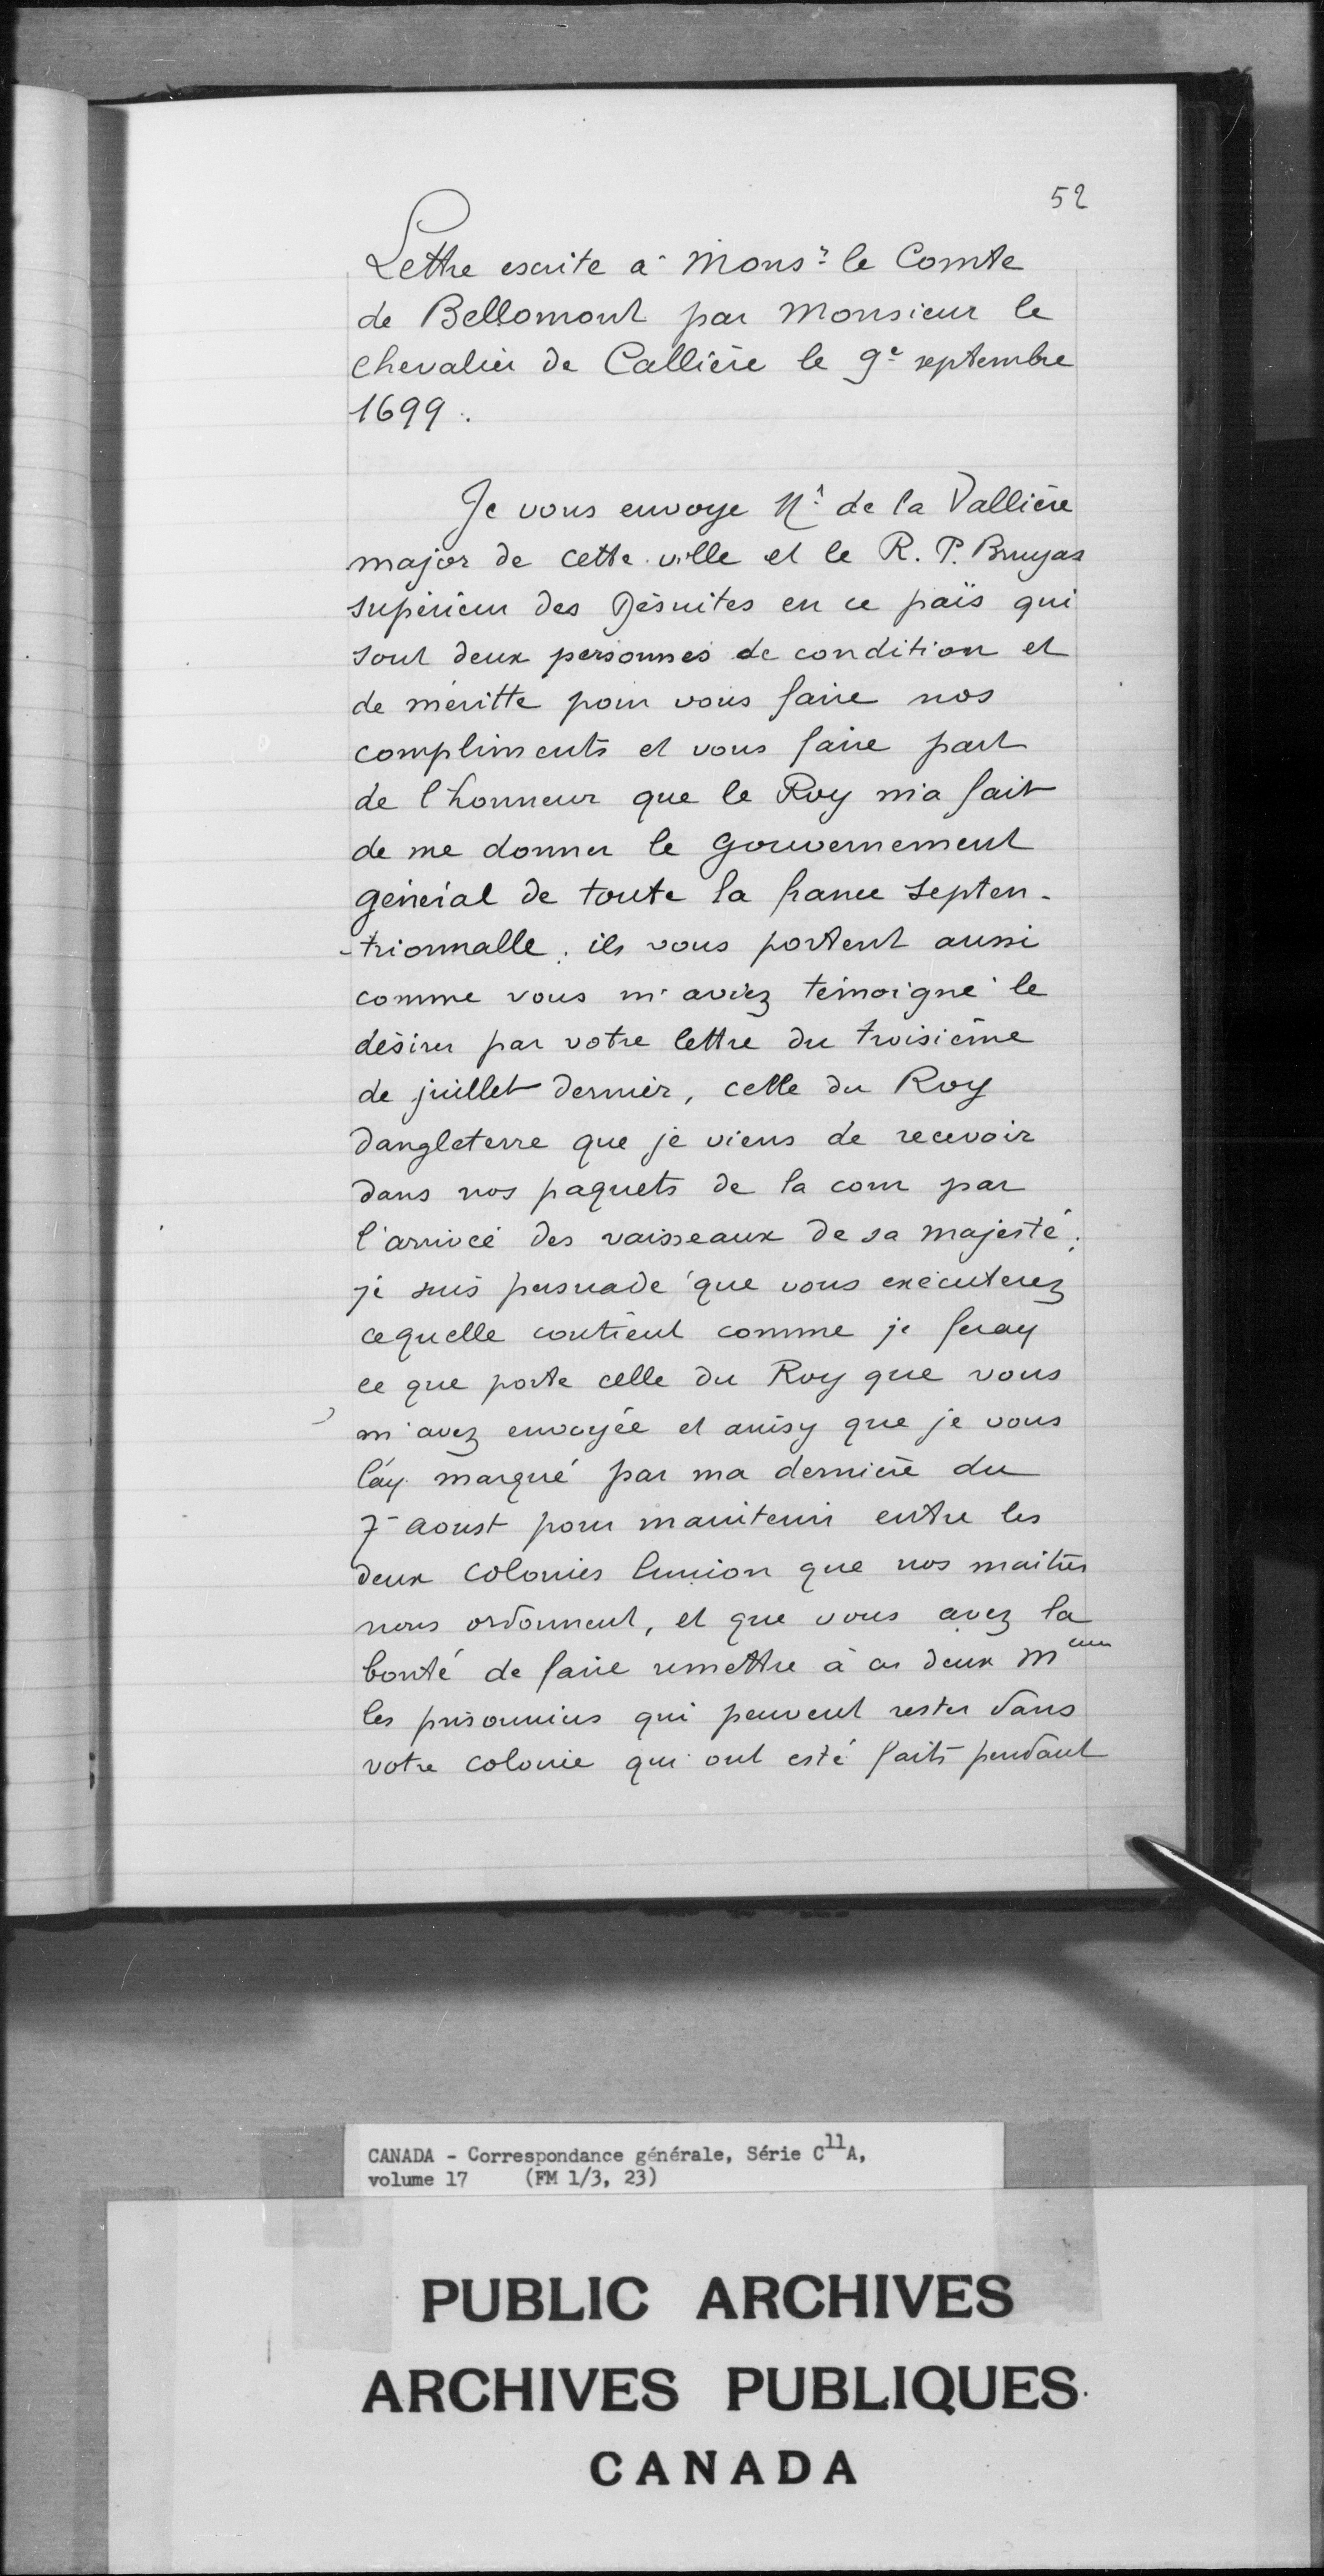 52
Lettre escrite a Monsr le Comte
de Bellomont par Monsieur le
chevalier de Callière le 9e septembre
1699.
Je vous envoye Mr de la Vallière
major de cette ville et le R. P. Bruyas
supérieur des Jésuites en ce païs qui
sont deux personnes de condition et
de méritte pour vous faire nos
compliments et vous faire part
de l'honneur que le Roy m'a fait
de me donner le gouvernement
général de toute la france septen-
-trionnalle. ils vous portent aussi
comme vous m'aviez témoigné le
désirer par votre lettre du troisième
de juillet dernier, celle du Roy
dangleterre que je viens de recevoir
dans nos paquets de la cour par
l'arrivée des vaisseaux de sa majesté;
je suis persuadé que vous exécuterez
cequelle contient comme je feray
ce que porte celle du Roy que vous
m'avez envoyée et ainsy que je vous
láy marqué par ma dernière du
7e aoust pour maintenir entre les
deux colonies lunion que nos maitres
nous ordonnent, et que vous avez la
bonté de faire remettre à ces deux M
les prisonniers qui peuvent rester dans
votre colonie qui ont esté faits pendant
CANADA - Correspondance générale, Série C11A,
volume 17 (FM 1/3, 23)
PUBLIC ARCHIVES
ARCHIVES PUBLIQUES
CANADA